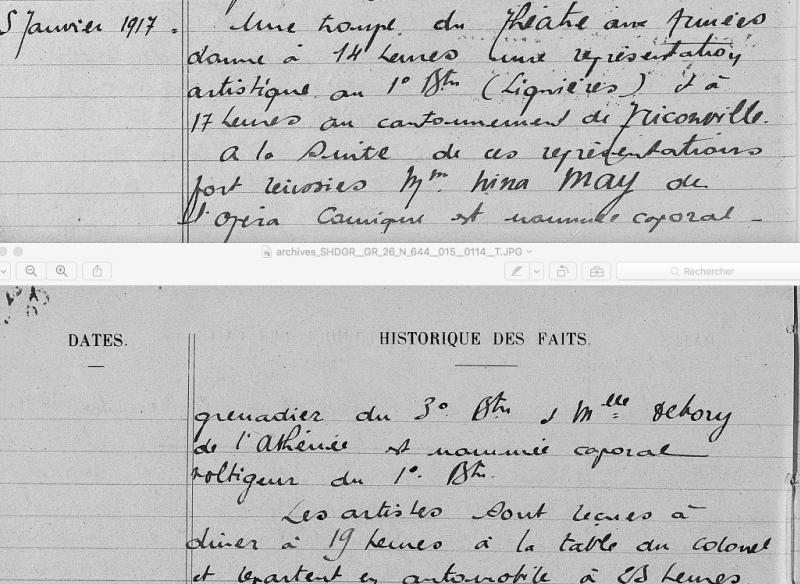 5 Janvier 1917. Une troupe du théâtre aux Armées
donne à 14 heures une représentation
artistique au 1° Btn (Lignières) et à
17 heures au cantonnement de Triconville.
A la suite de ces représentations
fort réussies Mme Nina MAY de
l'Opéra Comique est nommée caporal -
archives_SHDGR__GR_26_N_644__015__0114__T.JPG
Rechercher
DATES. HISTORIQUE DES FAITS.
grenadier du 3° Btn et Mlle
de l'Athénée est nommée caporal
voltigeur du 1° Btn.
Les artistes sont reçues à
dîner à 19 heures à la table du colonel
et repartent en automobile à 23 heures